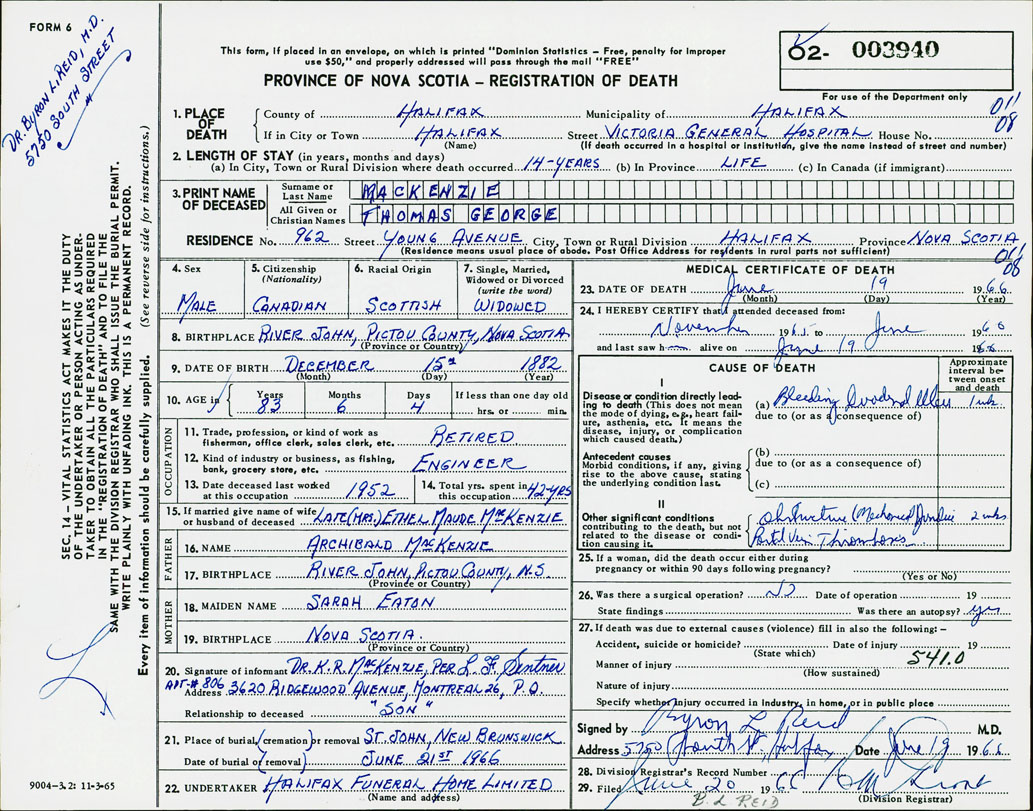 FORM 6
DR. BYRON L. REID, M.D.
5750 SOUTH STREET
This form, if placed in an envelope, on which is printed "Dominion Statistics – Free, penalty for improper
use $50," and properly addressed will pass through the mail "FREE"
PROVINCE OF NOVA SCOTIA – REGISTRATION OF DEATH
62- 003940
For use of the Department only
011
08
1. PLACE OF DEATH County of HALIFAX Municipality of HALIFAX
If in City or Town HALIFAX Street VICTORIA GENERAL HOSPITAL House No.
(Name) (If death occurred in a hospital or institution, give the name instead of street and number)
2. LENGTH OF STAY (in years, months and days)
(a) In City, Town or Rural Division where death occurred 14-YEARS (b) In Province LIFE (c) In Canada (if immigrant)
3. PRINT NAME OF DECEASED Surname or Last Name MACKENZIE
All Given or Christian Names THOMAS GEORGE
RESIDENCE No. 962 Street YOUNG AVENUE City, Town or Rural Division HALIFAX Province NOVA SCOTIA
(Residence means usual place of abode. Post Office Address for residents in rural parts not sufficient)
011
08
4. Sex MALE
5. Citizenship (Nationality) CANADIAN
6. Racial Origin SCOTTISH
7. Single, Married, Widowed or Divorced (write the word) WIDOWED
8. BIRTHPLACE RIVER JOHN, PICTOU COUNTY, NOVA SCOTIA
(Province or Country)
9. DATE OF BIRTH DECEMBER 15th 1882
(Month) (Day) (Year)
10. AGE in Years 83 Months 6 Days 4 If less than one day old hrs. or min.
OCCUPATION
11. Trade, profession, or kind of work as fisherman, office clerk, sales clerk, etc. RETIRED
12. Kind of industry or business, as fishing, bank, grocery store, etc. ENGINEER
13. Date deceased last worked at this occupation 1952
14. Total yrs. spent in this occupation 42-YRS
15. If married give name of wife or husband of deceased LATE (MRS.) ETHEL MAUDE MACKENZIE
FATHER
16. NAME ARCHIBALD MACKENZIE
17. BIRTHPLACE RIVER JOHN, PICTOU COUNTY, N.S.
(Province or Country)
MOTHER
18. MAIDEN NAME SARAH EATON
19. BIRTHPLACE NOVA SCOTIA.
(Province or Country)
20. Signature of informant DR. K.R. MACKENZIE, PER L. F. Sentner
APT-# 806
Address 3620 RIDGEWOOD AVENUE, MONTREAL 26, P.Q.
Relationship to deceased "SON"
21. Place of burial (cremation) or removal ST. JOHN, NEW BRUNSWICK
Date of burial (or removal) JUNE 21ST 1966
22. UNDERTAKER HALIFAX FUNERAL HOME LIMITED
(Name and address)
MEDICAL CERTIFICATE OF DEATH
23. DATE OF DEATH June 19 1966
(Month) (Day) (Year)
24. I HEREBY CERTIFY that I attended deceased from:
November 19 to June 1966
and last saw h alive on June 19 1966
CAUSE OF DEATH
Approximate interval between onset and death
I
Disease or condition directly leading to death (This does not mean the mode of dying, e.g., heart failure, asthenia, etc. It means the disease, injury, or complication which caused death.)
(a) Bleeding Duodenal Ulcer 1 wk
due to (or as a consequence of)
Antecedent causes
Morbid conditions, if any, giving rise to the above cause, stating the underlying condition last.
(b)
due to (or as a consequence of)
(c)
II
Other significant conditions contributing to the death, but not related to the disease or condition causing it.
Obstructive (Mechanical) Jaundice 2 wks
Portal Vein Thrombosis
25. If a woman, did the death occur either during pregnancy or within 90 days following pregnancy?
(Yes or No)
26. Was there a surgical operation? No Date of operation 19
State findings Was there an autopsy? yes
27. If death was due to external causes (violence) fill in also the following: –
Accident, suicide or homicide? Date of injury 19
(State which)
541.0
Manner of injury
(How sustained)
Nature of injury
Specify whether injury occurred in Industry, in home, or in public place
Signed by Byron L Reid M.D.
Address 5750 South St. Halifax Date June 19 1966
28. Division Registrar's Record Number
29. Filed June 20 1966
(Division Registrar)
B. L REID
SEC. 14 – VITAL STATISTICS ACT MAKES IT THE DUTY
OF THE UNDERTAKER OR PERSON ACTING AS UNDER-
TAKER TO OBTAIN ALL THE PARTICULARS REQUIRED
IN THE "REGISTRATION OF DEATH" AND TO FILE THE
SAME WITH THE DIVISION REGISTRAR WHO SHALL ISSUE THE BURIAL PERMIT.
WRITE PLAINLY WITH UNFADING INK. THIS IS A PERMANENT RECORD.
Every item of information should be carefully supplied. (See reverse side for instructions.)
9004-3.2: 11-3-65